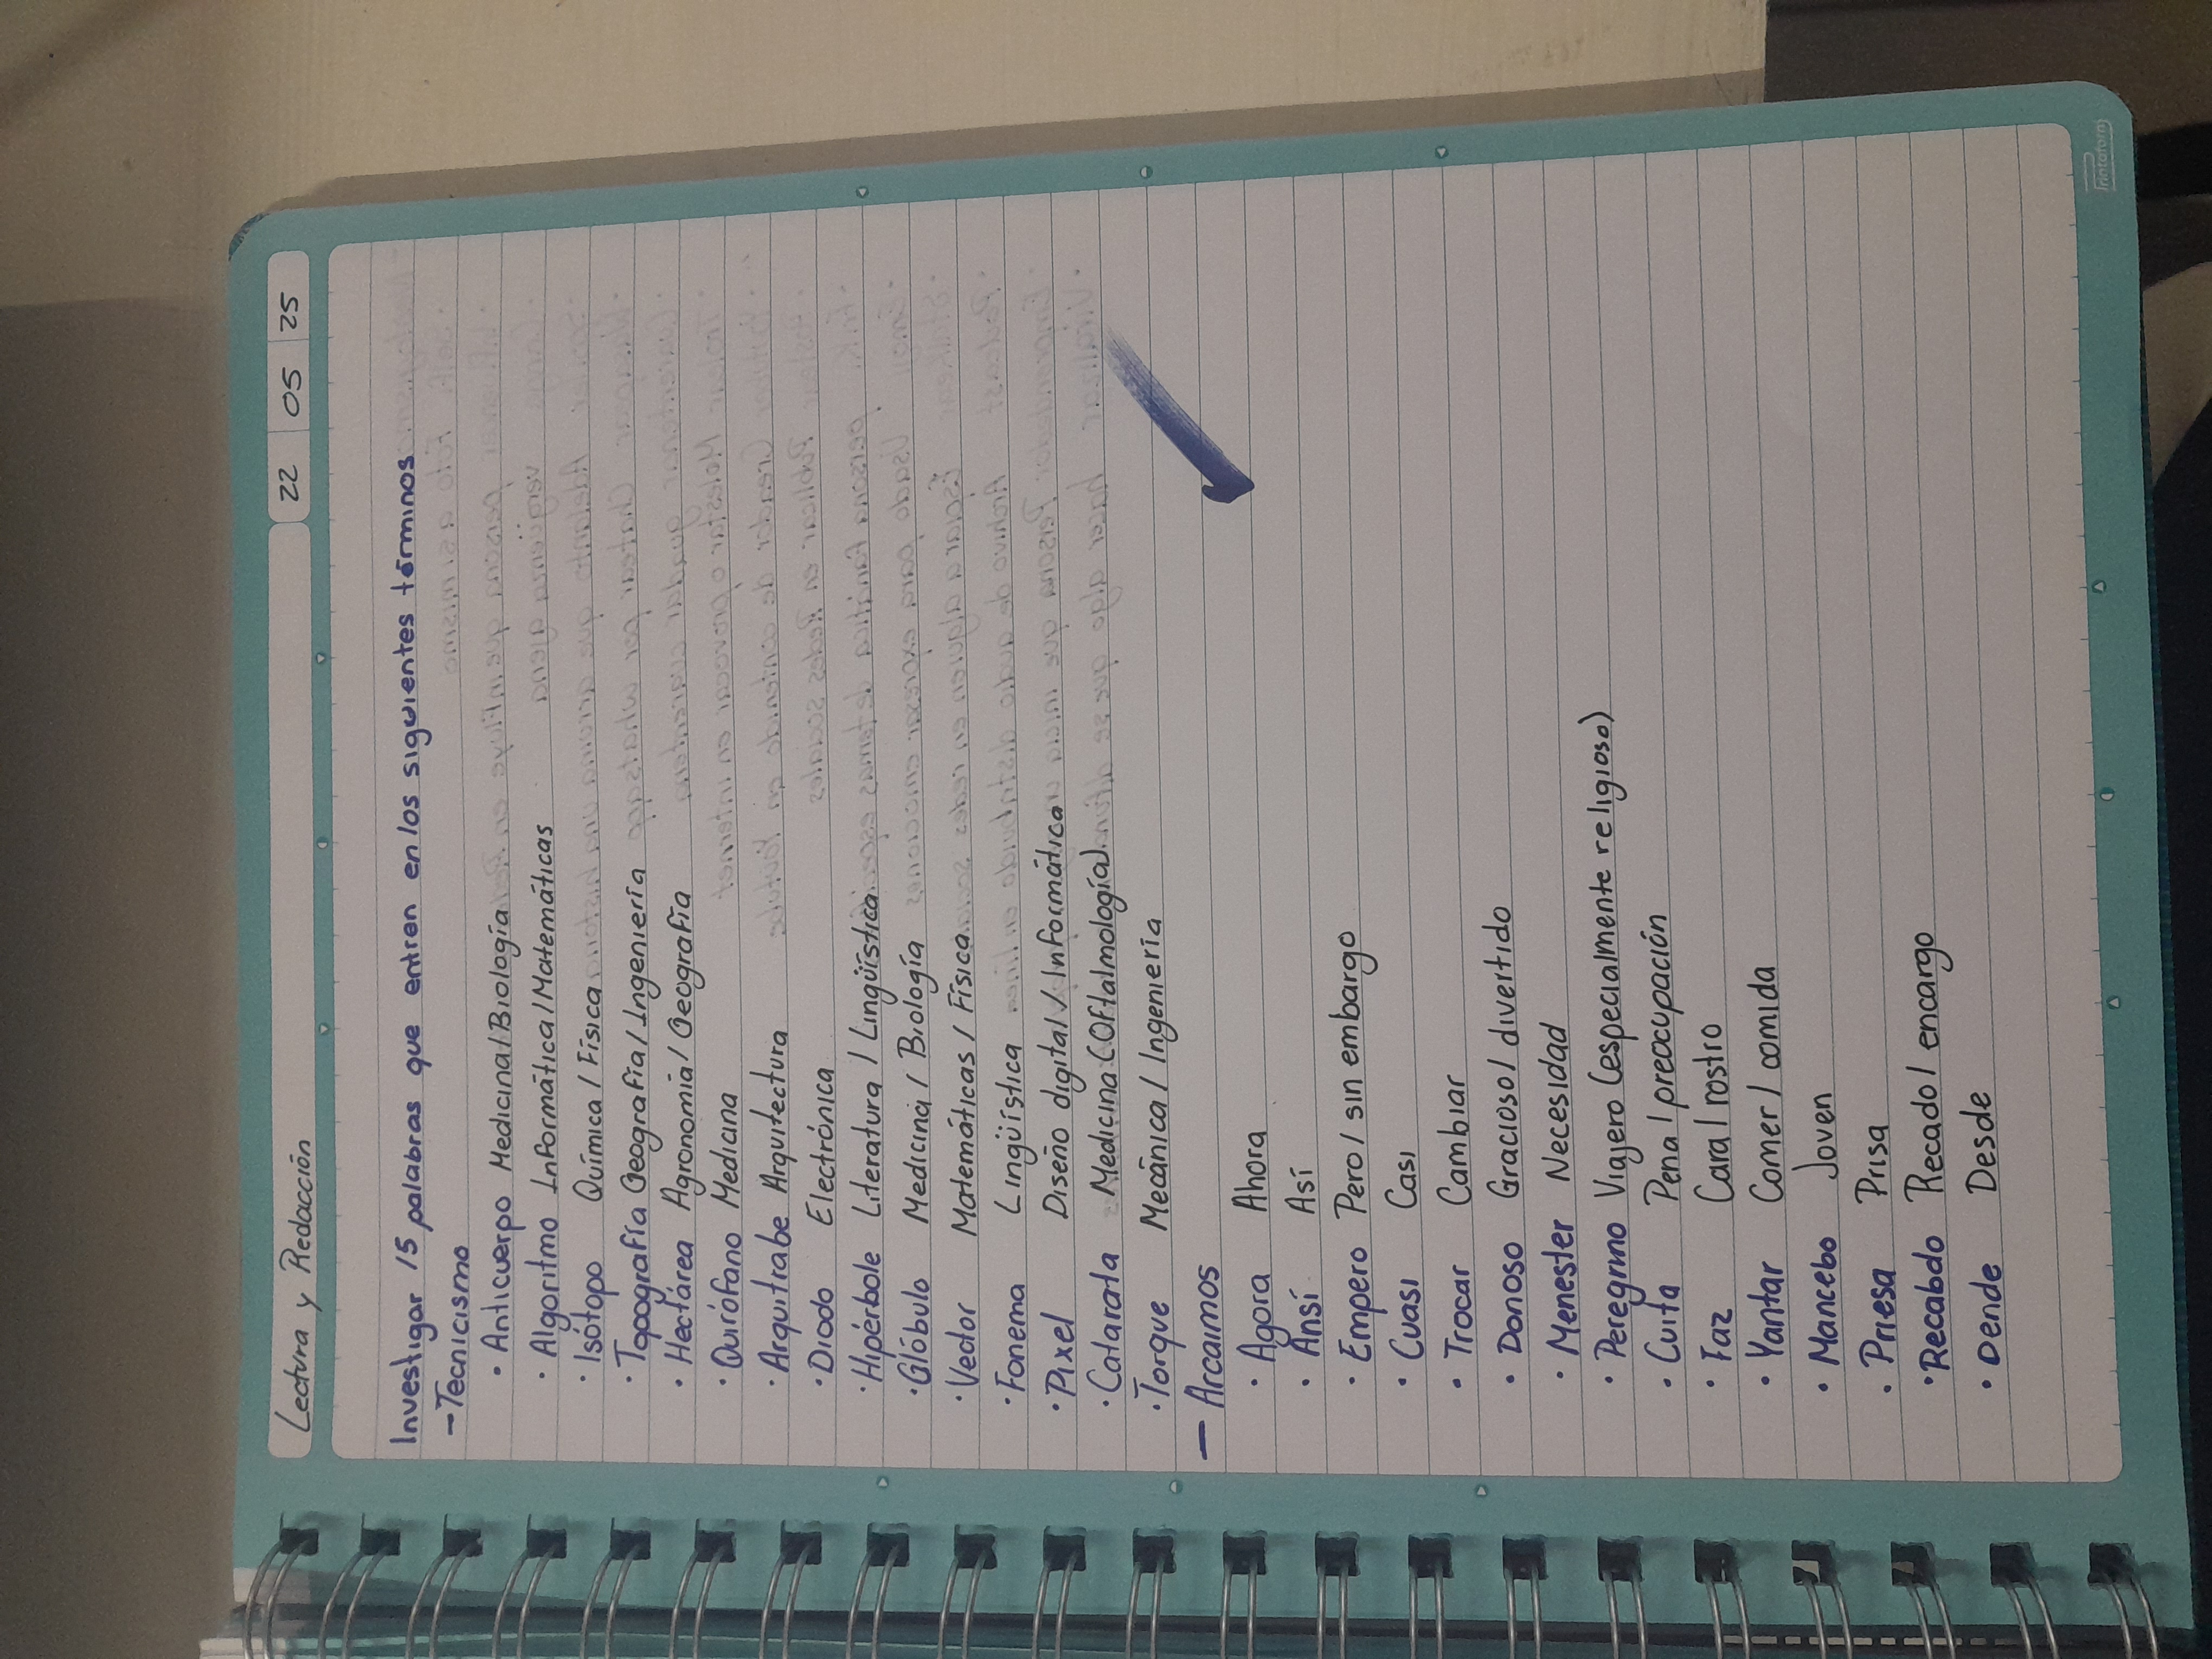 Lectura y Redacción 22 05 25
Investigar 15 palabras que entren en los siguientes términos
- Tecnicismo
· Anticuerpo Medicina/Biología
· Algoritmo Informática/Matemáticas
· Isótopo Química / Física
· Topografía Geografía/Ingeniería
· Hectárea Agronomía/Geografía
· Quirófano Medicina
· Arquitrabe Arquitectura
· Diodo Electrónica
· Hipérbole Literatura / Lingüística
· Glóbulo Medicina / Biología
· Vector Matemáticas / Física
· Fonema Lingüística
· Pixel Diseño digital / Informática
· Catarata Medicina (Oftalmología)
· Torque Mecánica / Ingeniería
- Arcaimos
· Agora Ahora
· Ansí Así
· Empero Pero / sin embargo
· Cuasi Casi
· Trocar Cambiar
· Donoso Gracioso / divertido
· Menester Necesidad
· Peregrino Viajero (especialmente religioso)
· Cuita Pena / preocupación
· Faz Cara / rostro
· Yantar Comer / comida
· Mancebo Joven
· Priesa Prisa
· Recabdo Recado / encargo
· Dende Desde
Printaform